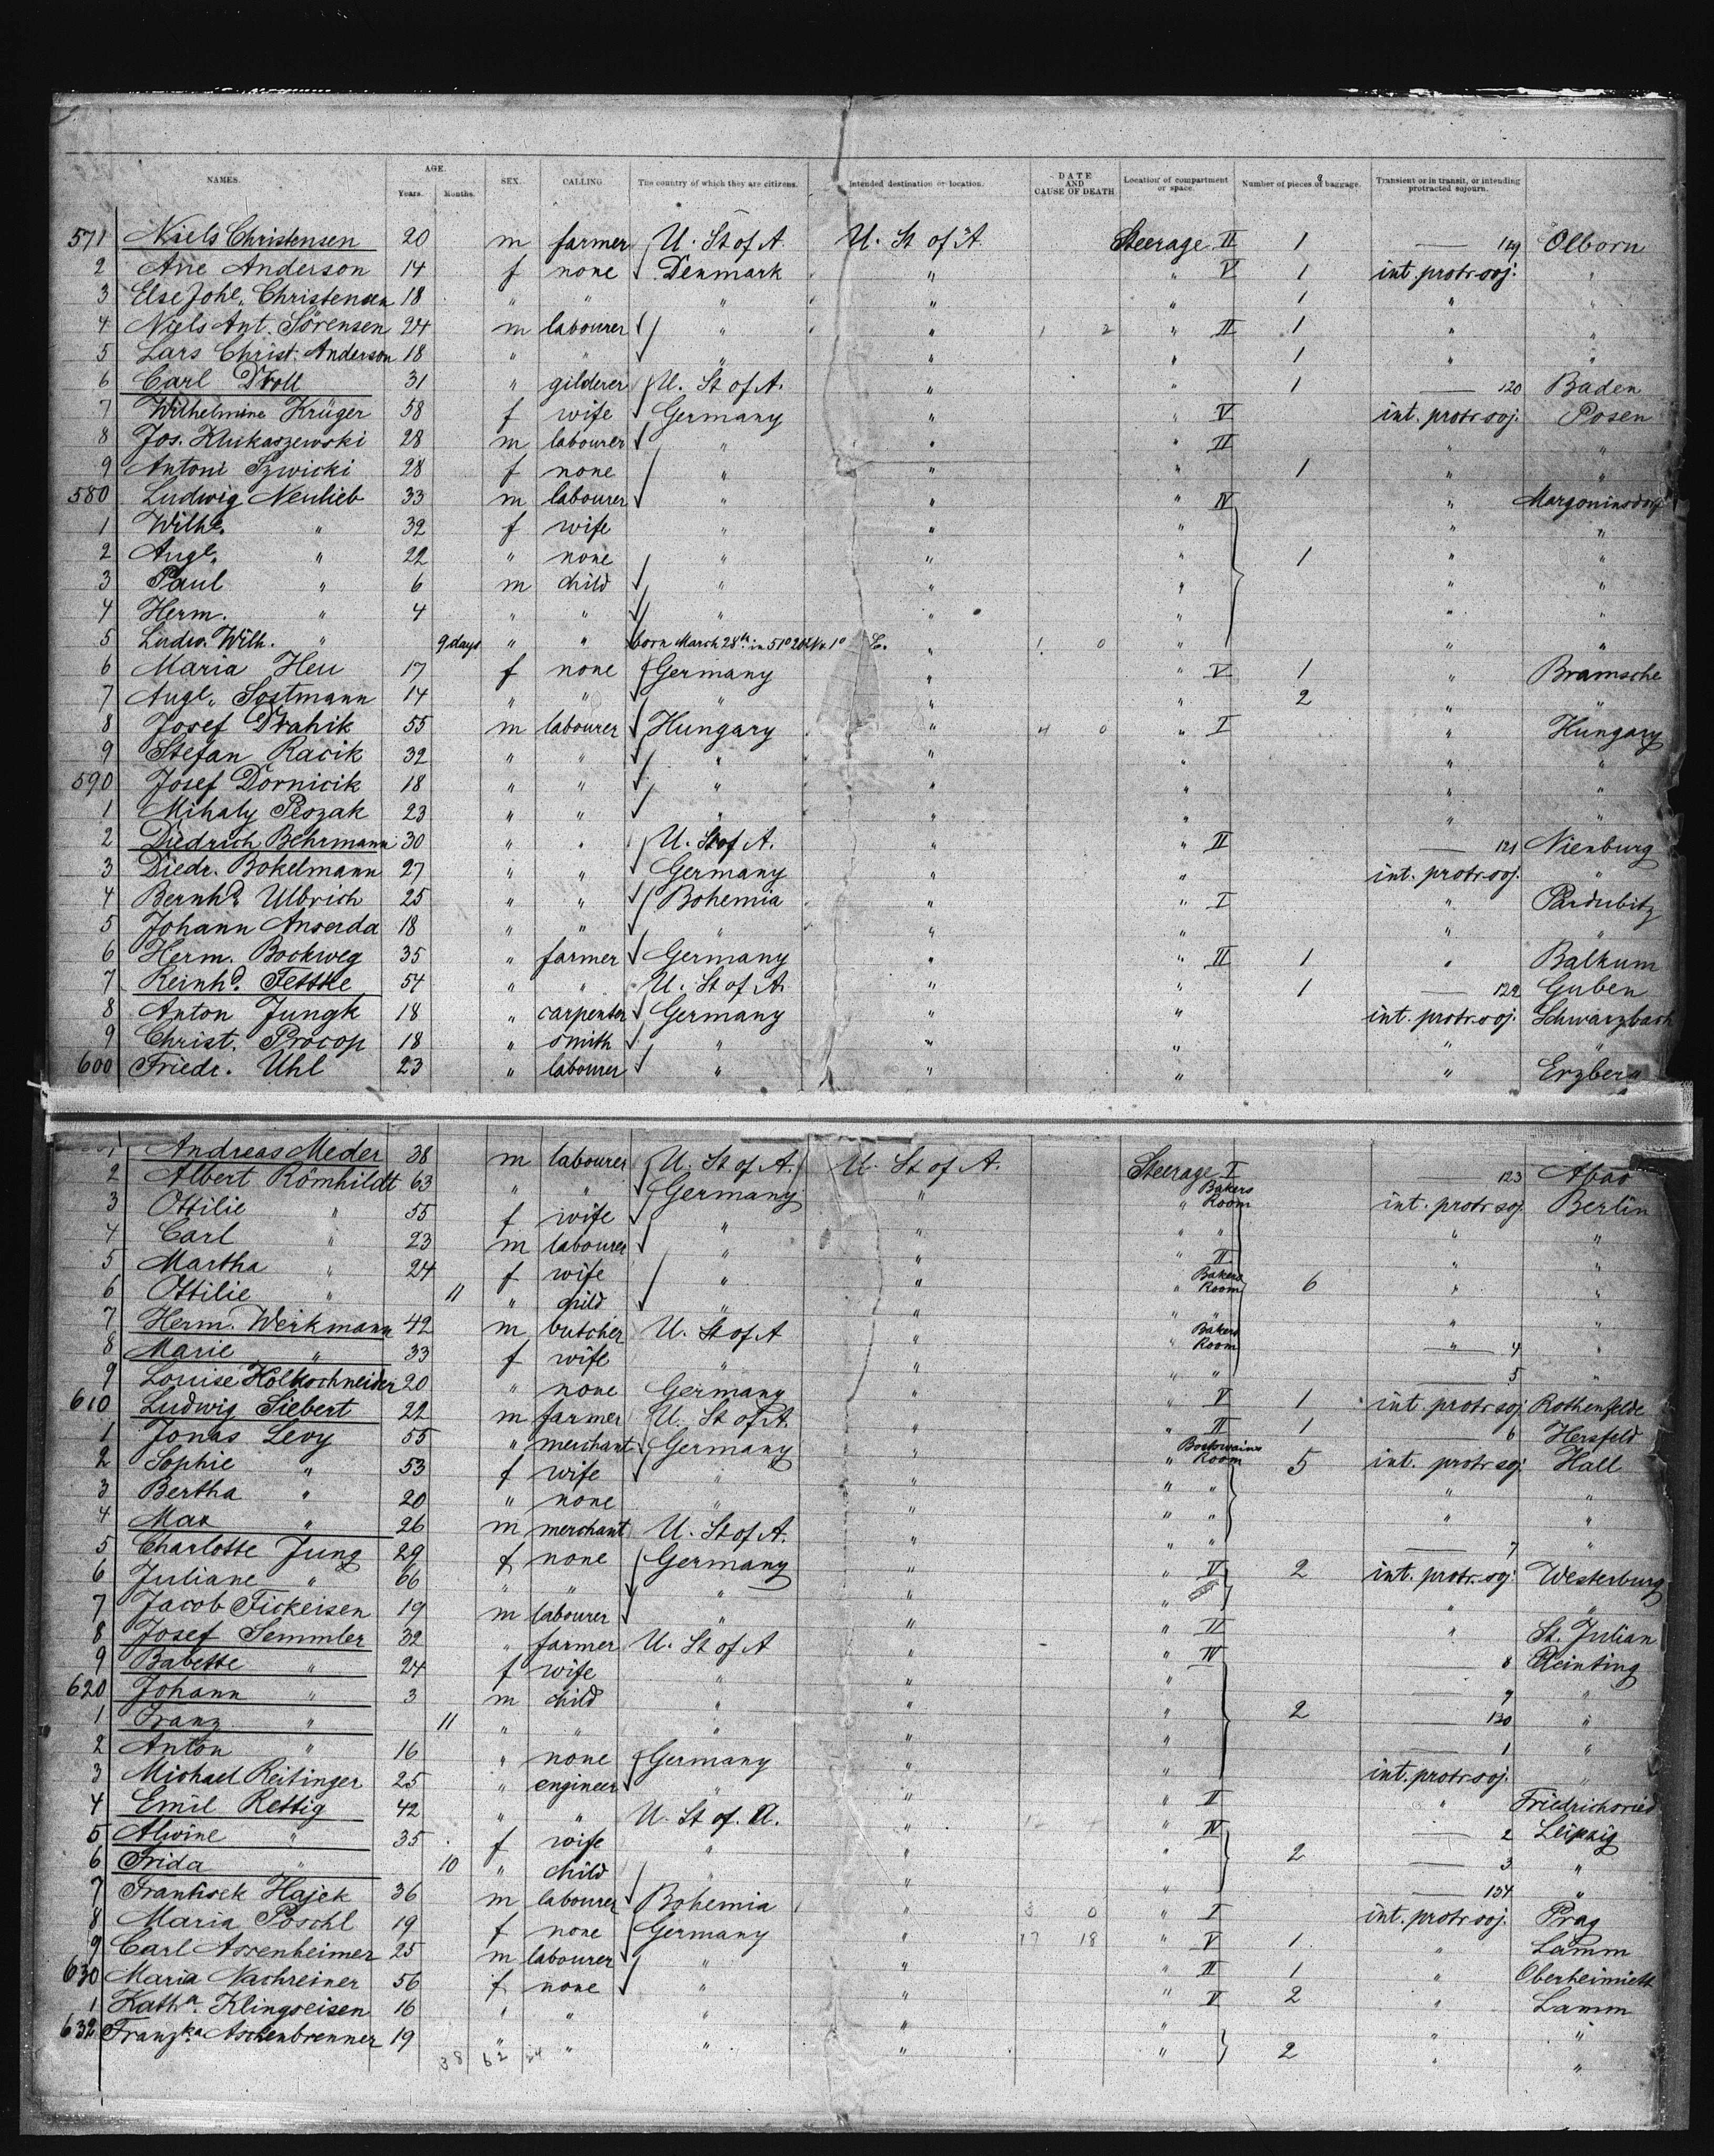 NAMES. AGE. Years. Months. SEX. CALLING. The country of which they are citizens. Intended destination or location. DATE AND CAUSE OF DEATH Location of compartment or space. Number of pieces of baggage. Transient or in transit, or intending protracted sojourn.
571 Niels Christensen 20 m farmer U. St of A. U. St of A. Steerage II 1 — 119 Olborn
2 Ane Anderson 14 f none Denmark " " V 1 int. protr. soj. "
3 Else Johe. Christensen 18 " " " " " 1 " "
4 Niels Ant. Sörensen 24 m labourer " " 1 2 " II 1 " "
5 Lars Christ. Anderson 18 " " " " " 1 " "
6 Carl Droll 31 " gilderer U. St of A. " " 1 — 120 Baden
7 Wilhelmine Krüger 58 f wife Germany " " V int. protr. soj. Posen
8 Jos. Klukaszewski 28 m labourer " " " II " "
9 Antoni Szwicki 28 f none " " " 1 " "
580 Ludwig Neulieb 33 m labourer " " " IV " Margoninsdorf
1 Wilhe. " 32 f wife " " " " "
2 Auge. " 22 " none " " " 1 " "
3 Paul " 6 m child " " " " "
4 Herm. " 4 " " " " " " "
5 Ludw. Wilh. " 9 days " " born March 28th in 51° L. " 1 0 " " "
6 Maria Heu 17 f none Germany " " V 1 " Bramsche
7 Auge. Sostmann 14 " " " " " 2 " "
8 Josef Drahik 55 m labourer Hungary " 4 0 " I " Hungary
9 Stefan Racik 32 " " " " " " "
590 Josef Dornicik 18 " " " " " " "
1 Mihaly Peszak 23 " " " " " " "
2 Diedrich Behrmann 30 " " U. St of A. " " II — 121 Nienburg
3 Diedr. Bokelmann 27 " " Germany " " int. protr. soj. "
4 Bernhd. Ulbrich 25 " " Bohemia " " I " Pardubitz
5 Johann Anserda 18 " " " " " " "
6 Herm. Bockweg 35 " farmer Germany " " II 1 " Balkum
7 Reinhd. Fettke 54 " " U. St of A. " " 1 — 122 Guben
8 Anton Jungk 18 " carpenter Germany " " int. protr. soj. Schwarzbach
9 Christ. Procop 18 " smith " " " " "
600 Friedr. Uhl 23 " labourer " " " "
1 Andreas Meder 38 m labourer U. St of A. U. St of A. Steerage I — 123 Abao
2 Albert Römhildt 63 " " Germany " " Bakers Room int. protr. soj. Berlin
3 Ottilie " 55 f wife " " " " " "
4 Carl " 23 m labourer " " " II " "
5 Martha " 24 f wife " " " Bakers Room 6 " "
6 Ottilie " 11 " child " " " " " "
7 Herm. Werkmann 42 m butcher U. St of A " " Bakers Room — 4 "
8 Marie " 33 f wife " " " " — 5 "
9 Louise Holkschneider 20 " none Germany " " V 1 int. protr. soj. Rothenfelde
610 Ludwig Siebert 22 m farmer U. St of A. " " II 1 — 6 Hersfeld
1 Jonas Levy 55 " merchant Germany " " Boatswains Room 5 int. protr. soj. Hall
2 Sophie " 53 f wife " " " " " "
3 Bertha " 20 " none " " " " " "
4 Max " 26 m merchant U. St of A. " " " — 7 "
5 Charlotte Jung 29 f none Germany " " V 2 int. protr. soj. Westerburg
6 Juliane " 66 " " " " " " "
7 Jacob Fickeisen 19 m labourer " " " II " St. Julian
8 Josef Semmler 32 " farmer U. St of A " " IV — 8 Pleinting
9 Babette " 24 f wife " " " — 9 "
620 Johann " 3 m child " " " 2 — 130 "
1 Franz " 11 " " " " " — 1 "
2 Anton " 16 " none Germany " " int. protr. soj. "
3 Michael Reitinger 25 " engineer " " " II " Friedrichsried
4 Emil Rettig 42 " " U. St of A. " " IV — 2 Leipzig
5 Alwine " 35 f wife " " " 2 — 3 "
6 Frida " 10 " child " " " — 134 "
7 Frantisek Hajek 36 m labourer Bohemia " 3 0 " I int. protr. soj. Prag
8 Maria Poschl 19 f none Germany " 17 18 " V 1 " Lamm
9 Carl Assenheimer 25 m labourer " " " II 1 "
630 Maria Nachreiner 56 f none " " " V 2 " Lamm
1 Katha. Klingseisen 16 " " " " " " "
632 Franzka. Aschenbrenner 19 " " " " " 2 " "
38 62